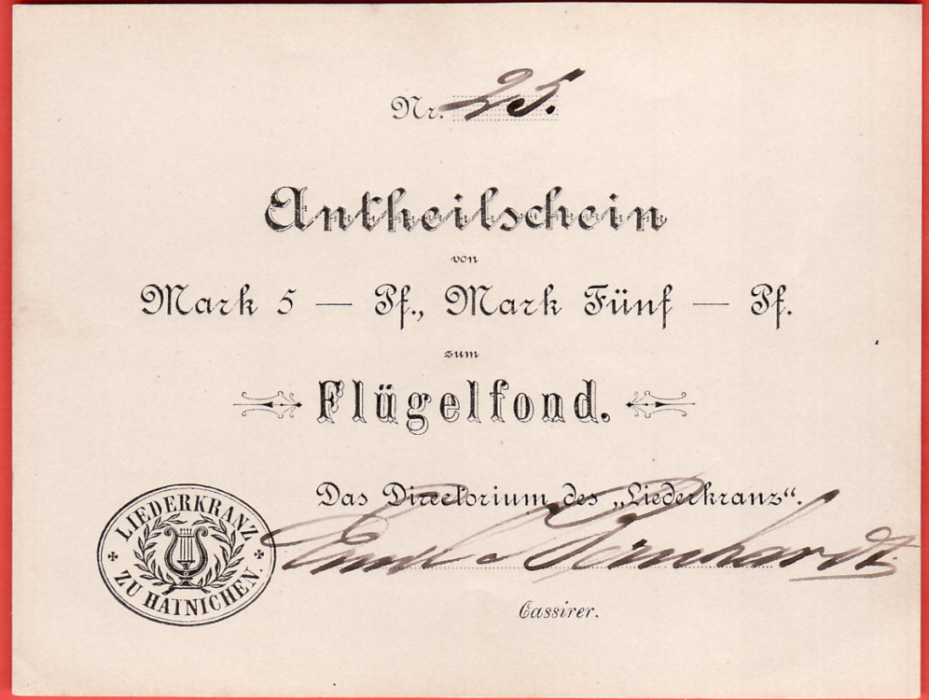 Nr. 25.
Antheilschein
von
Mark 5 — Pf., Mark Fünf — Pf.
zum
Flügelfond.
Das Directorium des „Liederkranz“.
LIEDERKRANZ
ZU HAINICHEN.
Emil Bernhardt.
Cassirer.